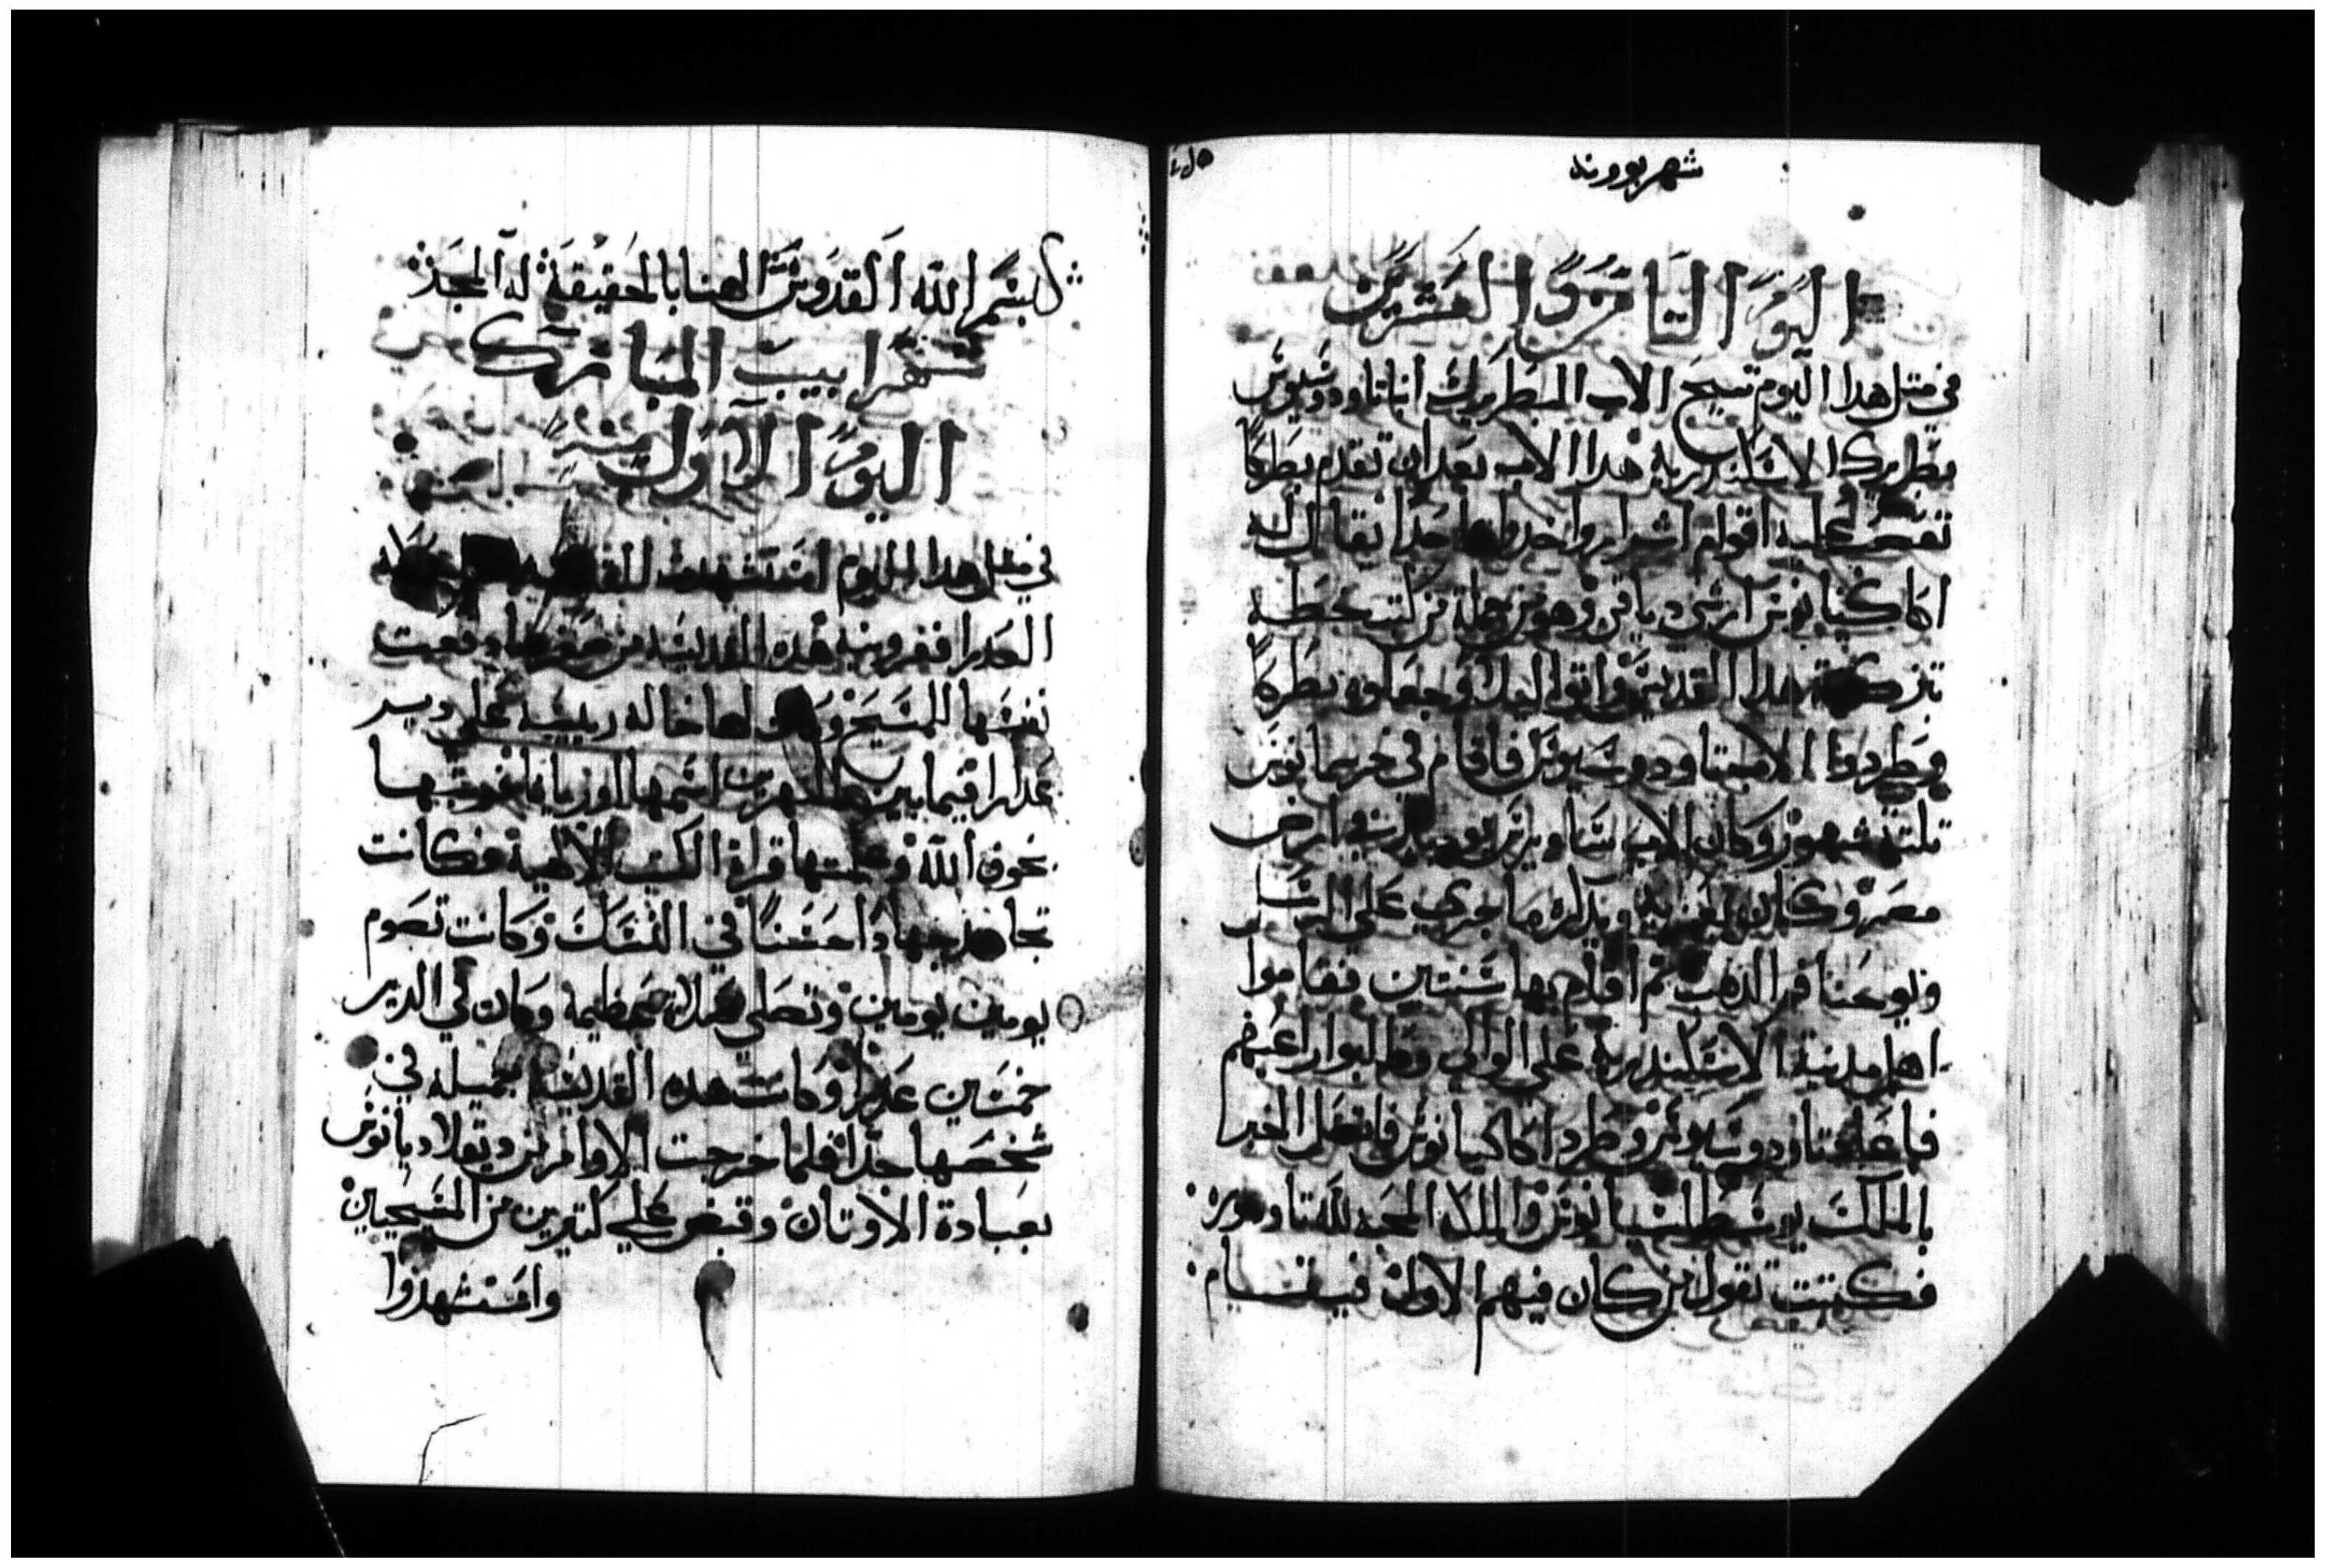 شهر بوونه
اليوم التامن والعشرين
في متل هدا اليوم تنيح الاب البطريرك انبا تاودوسيوس
بطريرك الاسكندرية هدا الاب بعد ان تقدم بطركا
تعصب عليه اقوام اشرار واخدوا واحدا يقال له
اكاكيانوس ارشي دياقن وهو من جملة من كتب بخطه
تزكية هدا القديس واتوا اليه وجعلوه بطركا
وطردوا الاب تاودوسيوس فاقام في جرسيمانوس
تلتة شهور وكان الاب ساويرس بوجد في ارض
مصر وكان يعزيه ويدكره ما جري علي الرسل
ويوحنا فم الدهب تم اقام بها سنتين فقاموا
اهل مدينة الاسكندرية علي الوالي وطلبوا راعيهم
فاعاد تاودوسيوس وطرد اكاكيانوس فاتصل الخبر
بالملك يوسطينيانوس والملكه المحبه لله تاودوره
فكتبت تقول من كان فيهم الاول فيقسام
بسم الله القدوس الهنا بالحقيقة له المجد
شهر ابيب المبارك
اليوم الاول
في متل هدا اليوم استشهدت القديسه
العدرا ففرونيه هده القديسه من صغرها وهبت
نفسها للمسيح وكان لها خاله رييسه علي دير
عدارا فيما بين النهرين اسمها اوريانا فربتها
بخوف الله وعلمتها قراة الكتب الالهية فكانت
تجاهد جهادا حسنا في النسك وكانت تصوم
يومين يومين وتصلي صلاة عظيمة وكان في الدير
خمسين عدرا وكانت هده القديسة جميله في
شخصها جدا فلما خرجت الاوامر من دقلاديانوس
بعبادة الاوتان وقبض علي كتيرين من المسيحيين
واستشهدوا